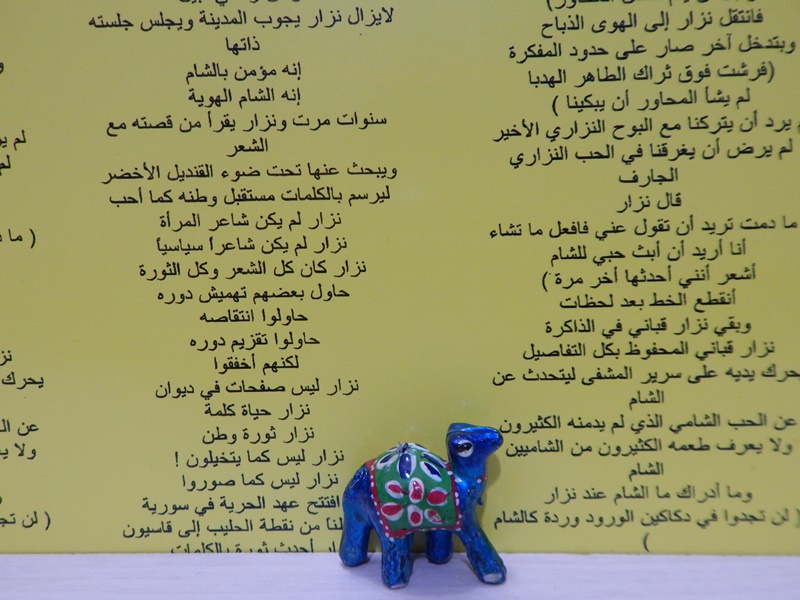 فانتقل نزار إلى الهوى الذباح
وبتدخل آخر صار على حدود المفكرة
(فرشت فوق ثراك الطاهر الهدبا
لم يشأ المحاور أن يبكينا )
يرد أن يتركنا مع البوح النزاري الأخير
لم يرض أن يغرقنا في الحب النزاري
الجارف
قال نزار
ما دمت تريد أن تقول عني فافعل ما تشاء
أنا أريد أن أبث حبي للشام
أشعر أنني أحدثها أخر مرة )
أنقطع الخط بعد لحظات
وبقي نزار قباني في الذاكرة
نزار قباني المحفوظ بكل التفاصيل
حرك يديه على سرير المشفى ليتحدث عن
الشام
عن الحب الشامي الذي لم يدمنه الكثيرون
ولا يعرف طعمه الكثيرون من الشاميين
الشام
وما أدراك ما الشام عند نزار
( لن تجدوا في دكاكين الورود وردة كالشام
)
لايزال نزار يجوب المدينة ويجلس جلسته
ذاتها
إنه مؤمن بالشام
إنه الشام الهوية
سنوات مرت ونزار يقرأ من قصته مع
الشعر
ويبحث عنها تحت ضوء القنديل الأخضر
ليرسم بالكلمات مستقبل وطنه كما أحب
نزار لم يكن شاعر المرأة
نزار لم يكن شاعراً سياسياً
نزار كان كل الشعر وكل الثورة
حاول بعضهم تهميش دوره
حاولوا انتقاصه
حاولوا تقزيم دوره
لكنهم أخفقوا
نزار ليس صفحات في ديوان
نزار حياة كلمة
نزار ثورة وطن
نزار ليس كما يتخيلون !
نزار ليس كما صوروا
افتتح عهد الحرية في سورية
لنا من نقطة الحليب إلى قاسيون
أحدث ثورة بالكلمات
و
لم ير
لم
( ما د
نز
يحرك
عن ال
ولا يع
( لن تجد